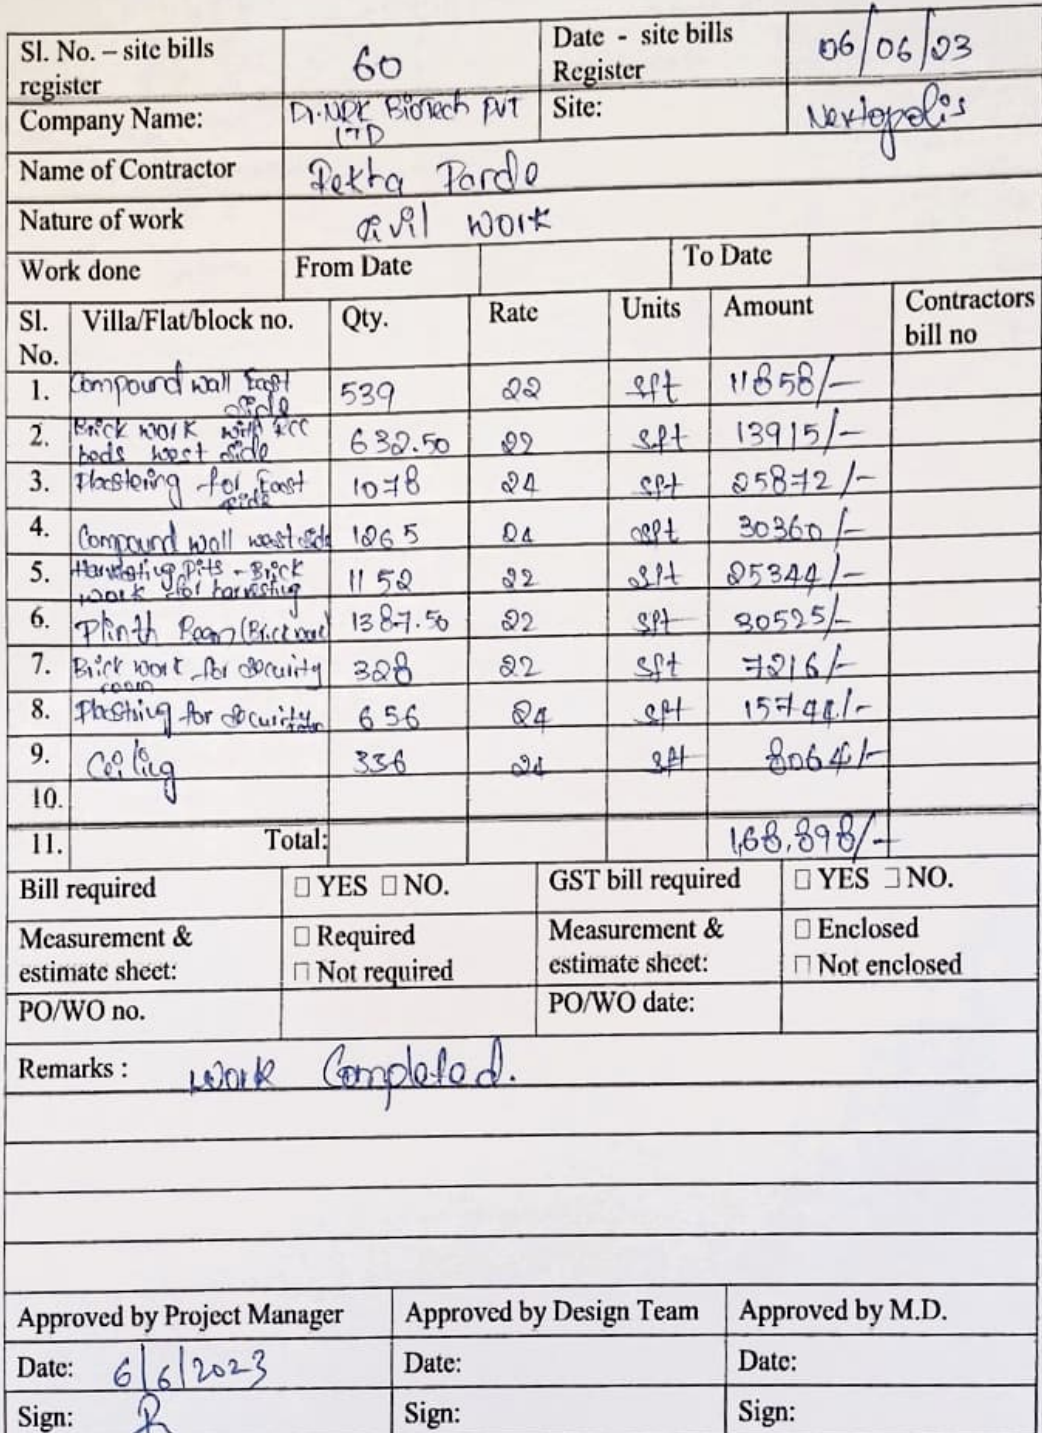 Sl. No. – site bills register 60 Date - site bills Register 06/06/23
Company Name: Dr. NRK Biotech PVT LTD Site: Nextopolis
Name of Contractor Rekha Parde
Nature of work Civil Work
Work done From Date To Date
Sl. No. Villa/Flat/block no. Qty. Rate Units Amount Contractors bill no
1. Compound wall East side 539 22 sft 11858/-
2. Brick work with RCC beds west side 632.50 22 sft 13915/-
3. Plastering for East side 1078 24 sft 25872/-
4. Compound wall west side 1265 24 sft 30360/-
5. Harvesting Pits - Brick work for harvesting 1152 22 sft 25344/-
6. Plinth Beam (Brick work) 1387.50 22 sft 30525/-
7. Brick work for security room 328 22 sft 7216/-
8. Plastring for security 656 24 sft 15744/-
9. Ceiling 336 24 sft 8064/-
10.
11. Total: 1,68,898/-
Bill required □ YES □ NO. GST bill required □ YES □ NO.
Measurement & estimate sheet: □ Required □ Not required Measurement & estimate sheet: □ Enclosed □ Not enclosed
PO/WO no. PO/WO date:
Remarks : Work Completed.
Approved by Project Manager Approved by Design Team Approved by M.D.
Date: 6/6/2023 Date: Date:
Sign: Sign: Sign: